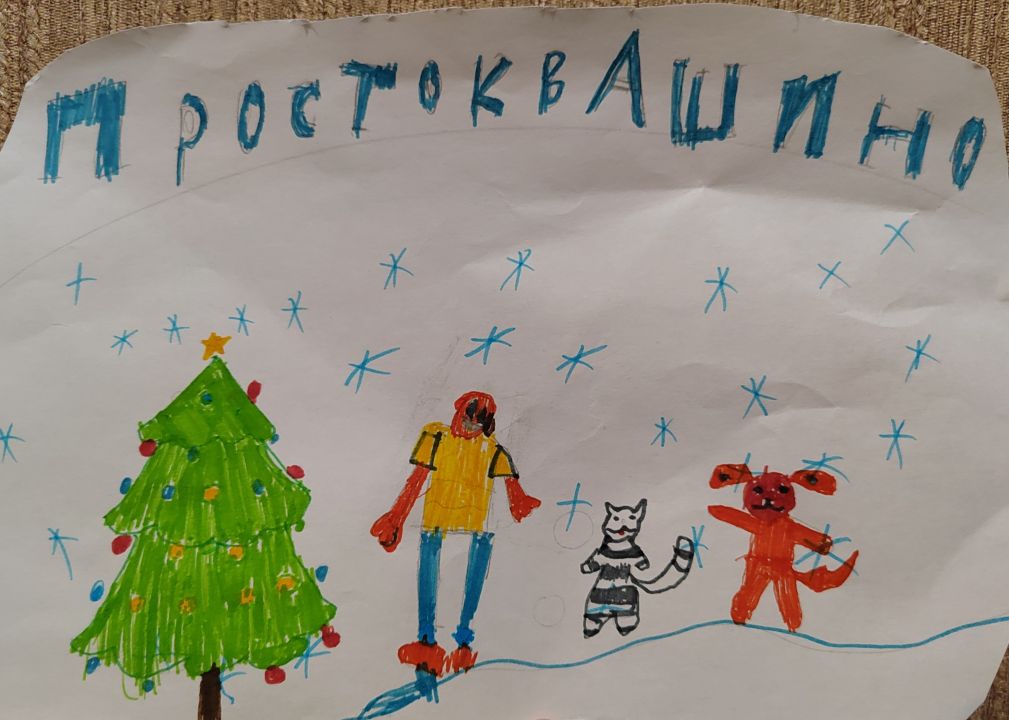 ПРОСТОКВАШИНО